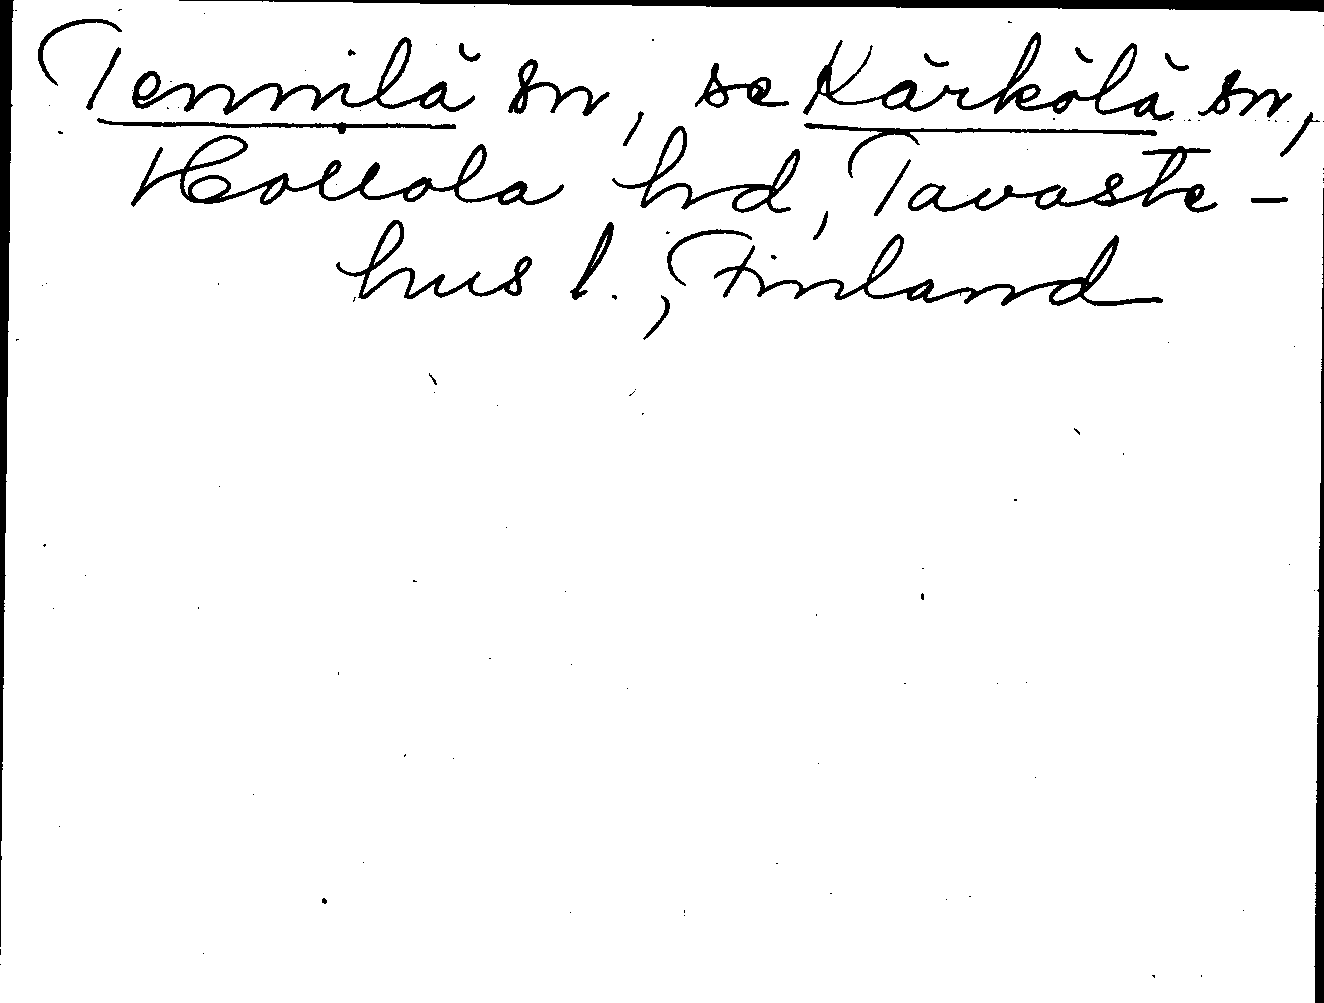 Tennilä sn, se Kärkölä sn,
Hollola hd, Tavaste-
hus l., Finland